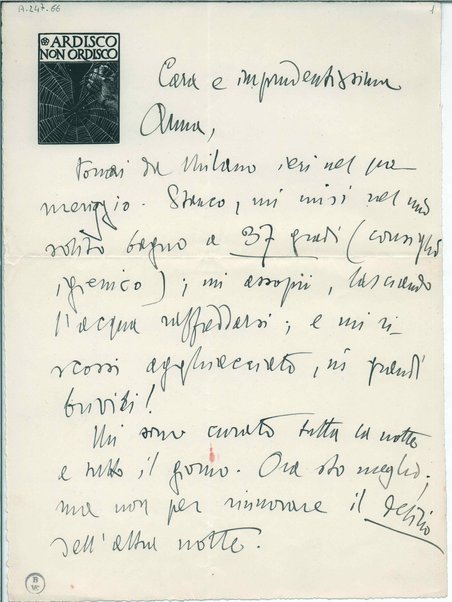 A-247.66
1
ARDISCO
NON ORDISCO
Cara e imprudentissima
Anna,
tornai da Milano ieri nel po-
meriggio. Stanco, mi misi nel mio
solito bagno a 37 gradi (consiglio
igienico); mi assopii, lasciando
l'acqua raffreddarsi; e mi ri-
scossi agghiacciato, in grandi
brividi!
Mi sono curato tutta la notte
e tutto il giorno. Ora sto meglio;
ma non per rinnovare il
dell'altra notte.